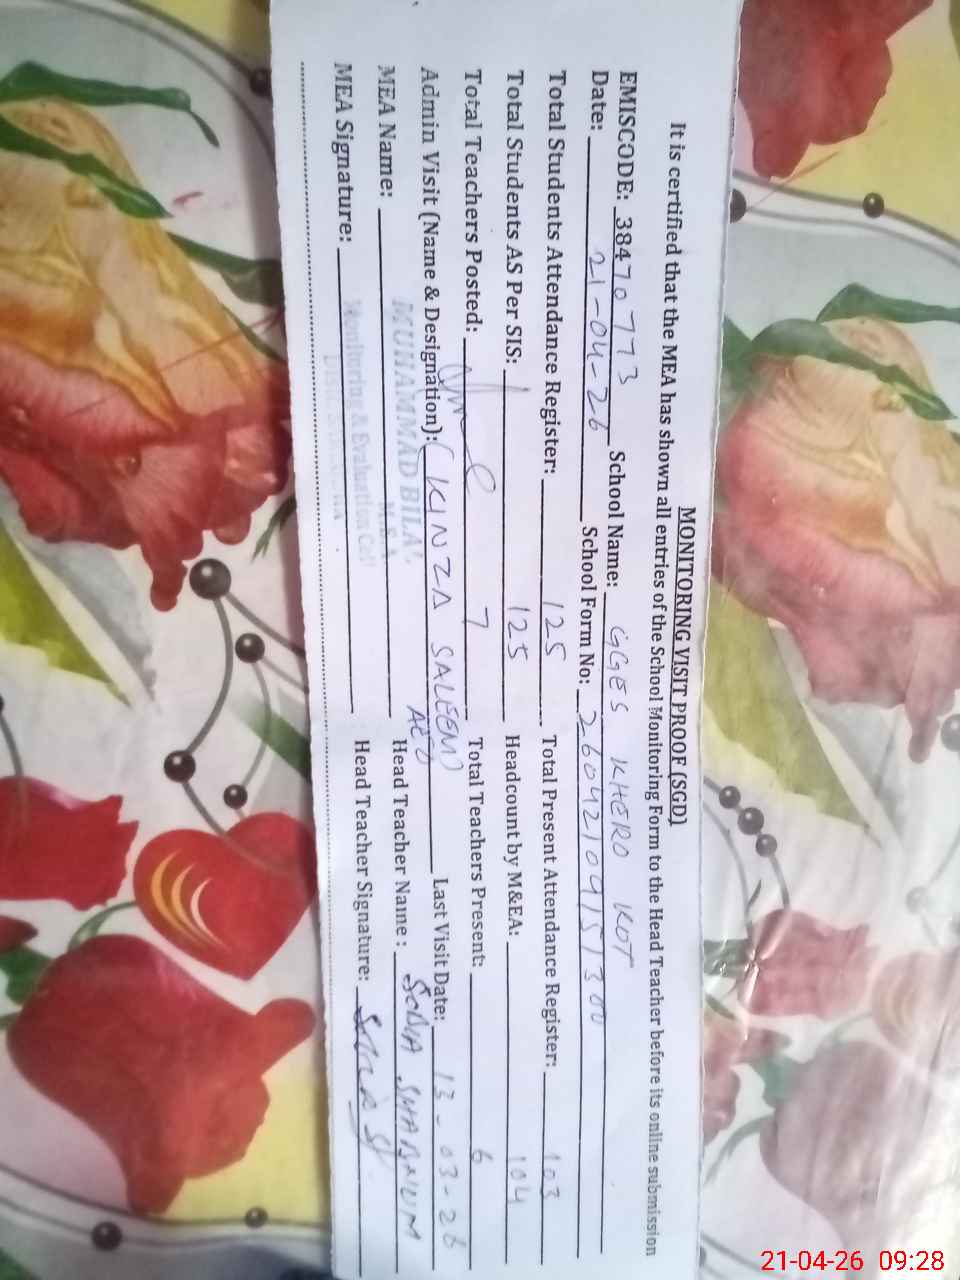 MONITORING VISIT PROOF (SGD)
It is certified that the MEA has shown all entries of the School Monitoring Form to the Head Teacher before its online submission
EMISCODE: 38470773 School Name: GGES KHERO KOT
Date: 21-04-26 School Form No: 260421091513 00
Total Students Attendance Register: 125 Total Present Attendance Register: 103
Total Students AS Per SIS: 125 Headcount by M&EA: 104
Total Teachers Posted: 7 Total Teachers Present: 6
Admin Visit (Name & Designation): (KINZA SALEEM) AEO Last Visit Date: 13-03-26
MEA Name: MUHAMMAD BILAL Head Teacher Name: SONIA SHABNUM
M.E.A
MEA Signature: Head Teacher Signature:
Monitoring & Evaluation Cell
21-04-26 09:28